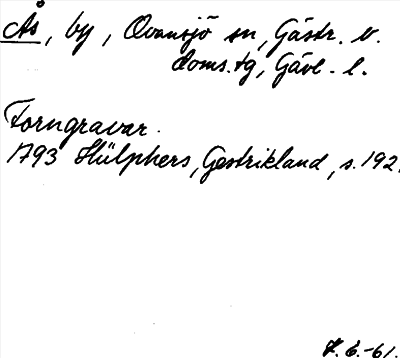 Ås, by, Ovansjö sn, Gästr. v.
doms.tg, Gävl. l.
Forngravar.
1793 Hülphers, Gestrikland, s. 192.
-61.